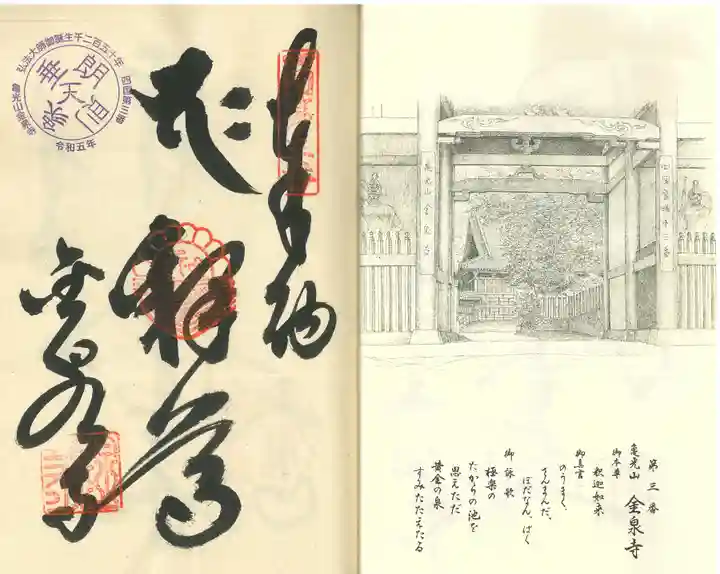 奉納
釈尊
金泉寺
弘法大師御誕生千二百五十年
四国第三番
亀光山金泉寺
令和五年
亀光山金泉寺
四国霊場第三番
第三番
亀光山 金泉寺
御本尊
釈迦如来
御真言
のうまく、
さんまんだ、
ぼだなん、ばく
御詠歌
極楽の
たからの池を
思えただ
黄金の泉
すみたたえたる